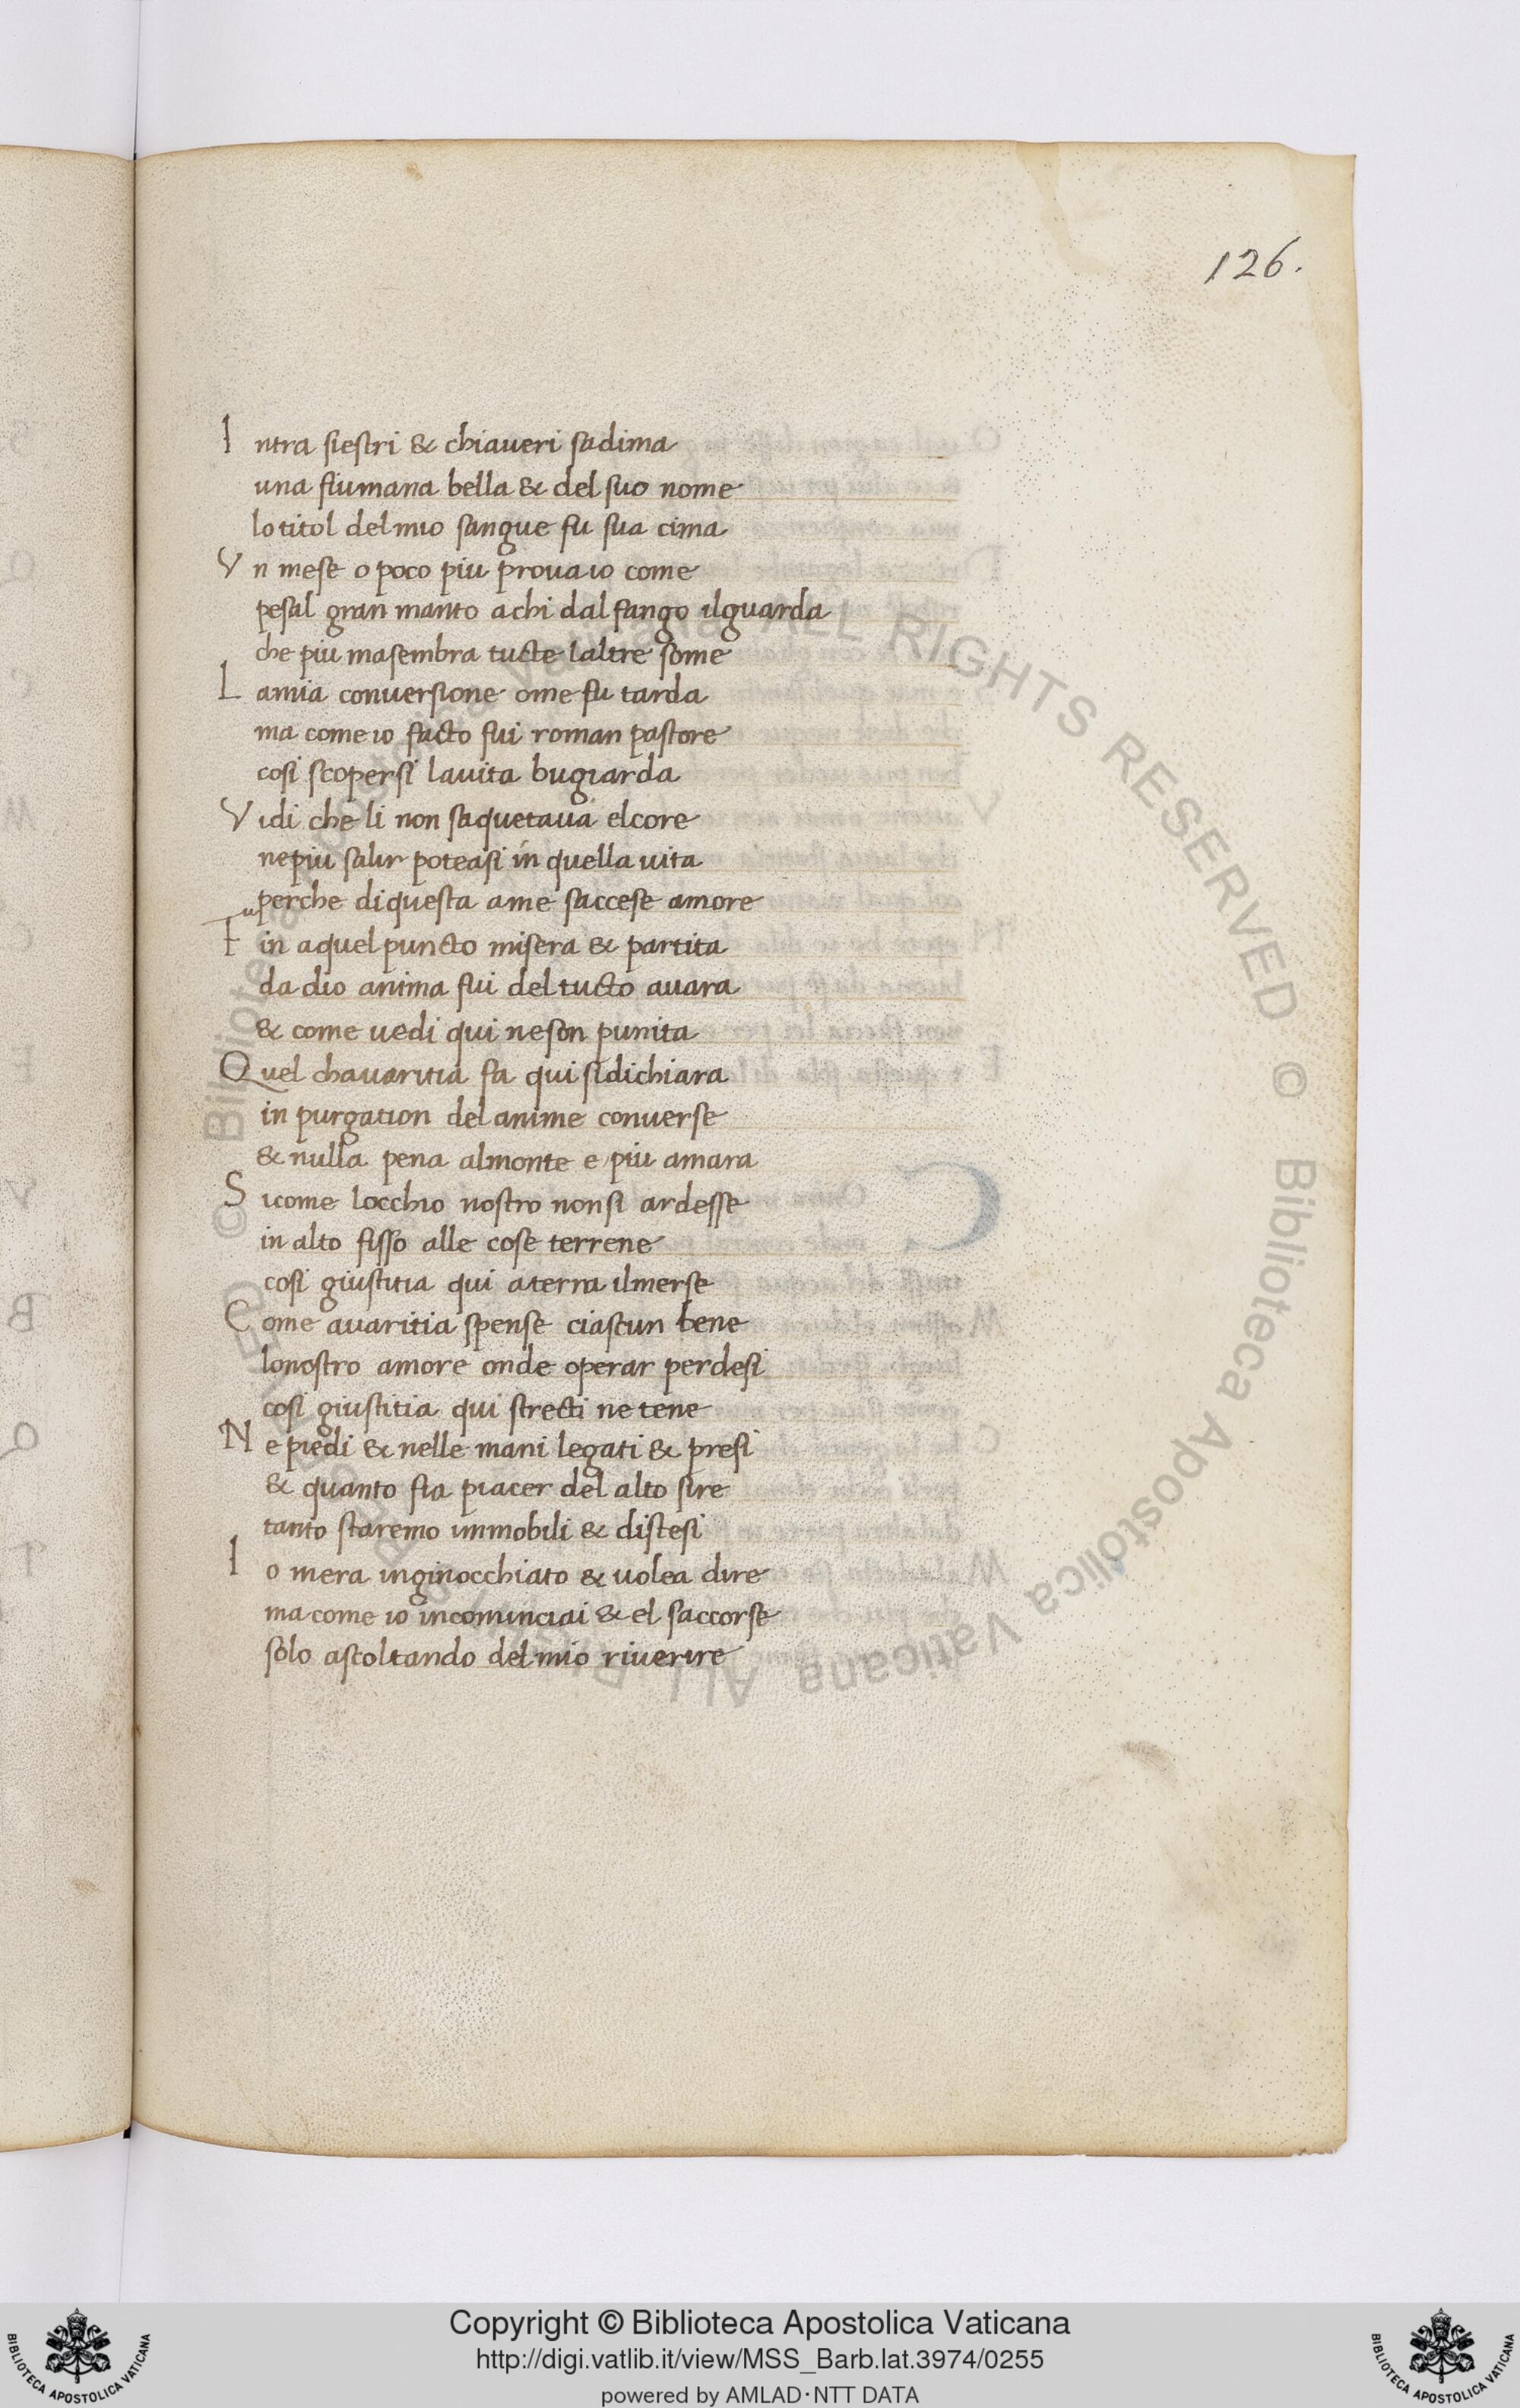 126.
Intra siestri & chiaueri sadima
una fiumana bella & del suo nome
lo titol del mio sangue fu sua cima
Vn mese o poco piu prouaio come
pesal gran manto achi dal fango ilguarda
che piu masembra tucte laltre some
Lamia conuersione ome fu tarda
ma come io facto fui roman pastore
cosi scopersi lauita bugiarda
Vidi che li non saquetaua elcore
nepiu salir poteasi in quella uita
perche diquesta ame saccese amore
Fuin aquel puncto misera & partita
da dio anima fui deltucto auara
& come uedi qui neson punita
Quel chauaritia fa qui sidichiara
in purgation delanime conuerse
& nulla pena almonte e piu amara
Sicome locchio nostro nonsi ardesse
in alto fisso alle cose terrene
cosi giustitia qui aterra ilmerse
Come auaritia spense ciascun bene
lonostro amore onde operar perdesi
cosi giustitia qui strecti ne tene
Ne piedi & nelle mani legati & presi
& quanto fia piacer del alto sire
tanto staremo immobili & distesi
Io mera inginocchiato & uolea dire
ma come io incominciai & el saccorse
solo ascoltando del mio riuerire
© Biblioteca Apostolica Vaticana ALL RIGHTS RESERVED
© Biblioteca Apostolica Vaticana ALL RIGHTS RESERVED
Copyright © Biblioteca Apostolica Vaticana
http://digi.vatlib.it/view/MSS_Barb.lat.3974/0255
powered by AMLAD·NTT DATA
BIBLIOTECA APOSTOLICA VATICANA
BIBLIOTECA APOSTOLICA VATICANA